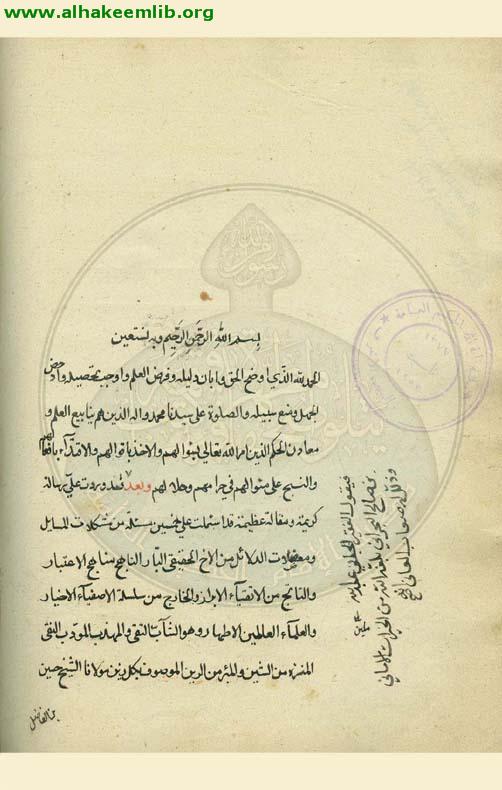 www.alhakeemlib.org
بسم الله الرحمن الرحيم وبه نستعين
الحمد لله الذي اوضح الحق وابان دليله وفرض العلم واوجب تحصيله وادحض
الجهل ومنع سبيله والصلوة على سيدنا محمد واله الذين هم ينابيع العلم و
معادن الحكم الذين امر الله تعالى بسؤالهم والاخذ باقوالهم والاقتداء بافعالهم
والنسج على منوالهم في حرامهم وحلالهم وبعد فقد وردت علي رسالة
كريمة ومقالة عظيمة قد اشتملت على خمسين مسئلة من مشكلات المسايل
ومعضلات الدلائل من الاخ الحقيقي البار الناهج مناهج الاعتبار
والناتج من الاتقياء الابرار والخارج من سلسلة الاصفياء الاخيار
والعلماء العاملين الاطهار وهو الشاب التقي والمهذب المؤدب النقي
المنزه من الشين والمبرء من الرين الموصوف بكل زين مولانا الشيخ حسين
فيقول الفقير الجاني عبد الله
بن صالح البحراني بلغه الله من الخيرات الاماني
بن الفاضل